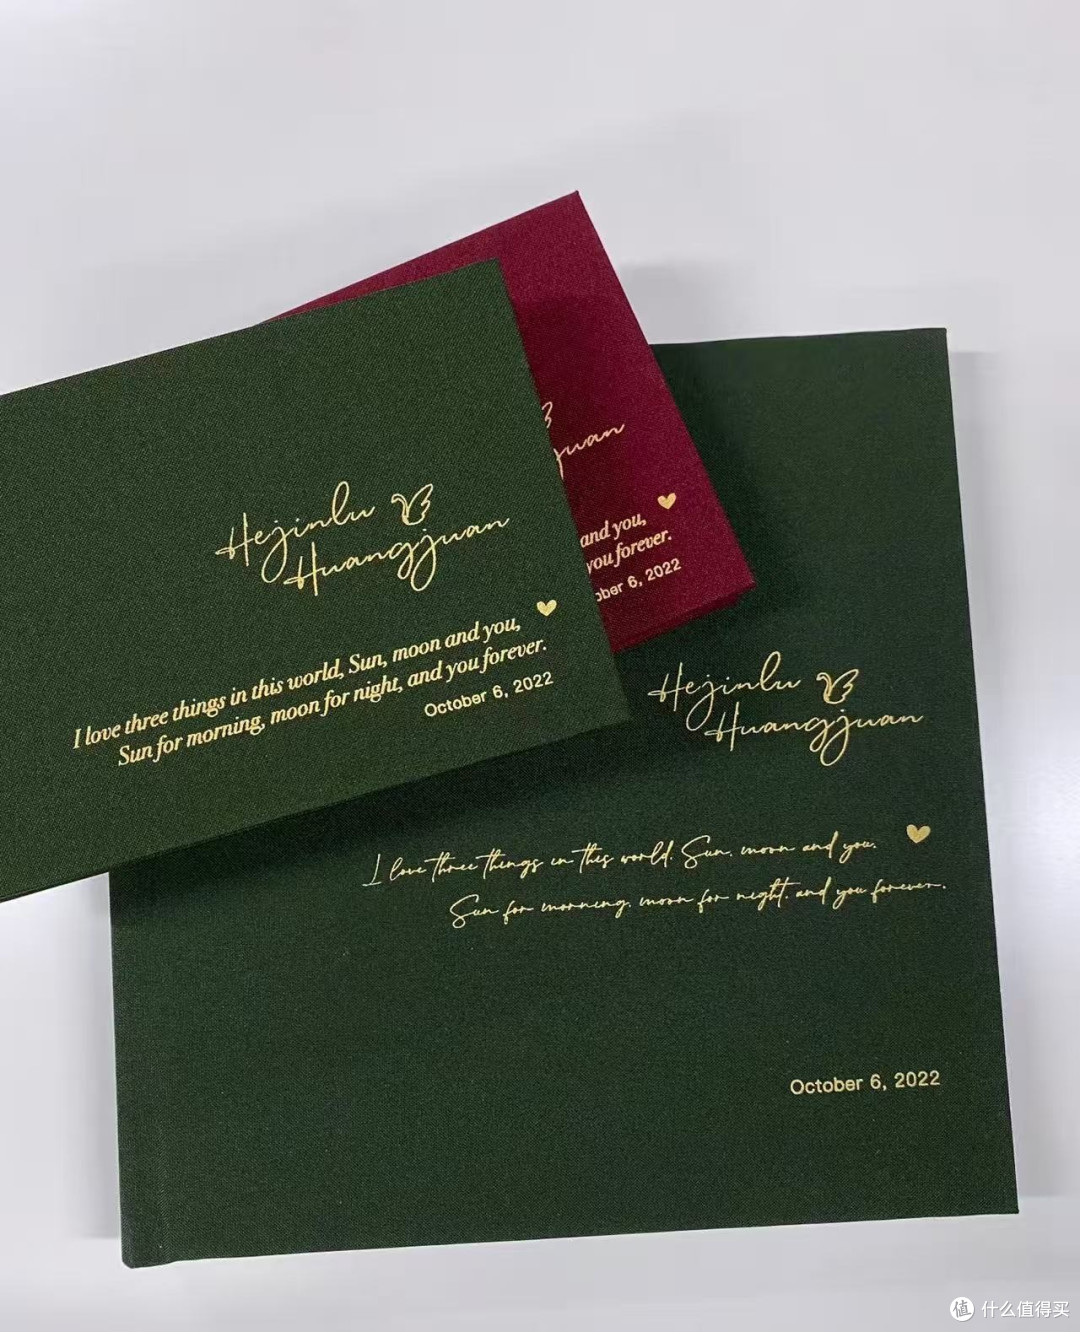 Hejinlu
Huangjuan
I love three things in this world, Sun, moon and you,
Sun for morning, moon for night, and you forever.
October 6, 2022
juan
and you,
you forever.
ober 6, 2022
Hejinlu
Huangjuan
I love three things in this world. Sun. moon and you.
Sun for morning. moon for night. and you forever.
October 6, 2022
值 什么值得买